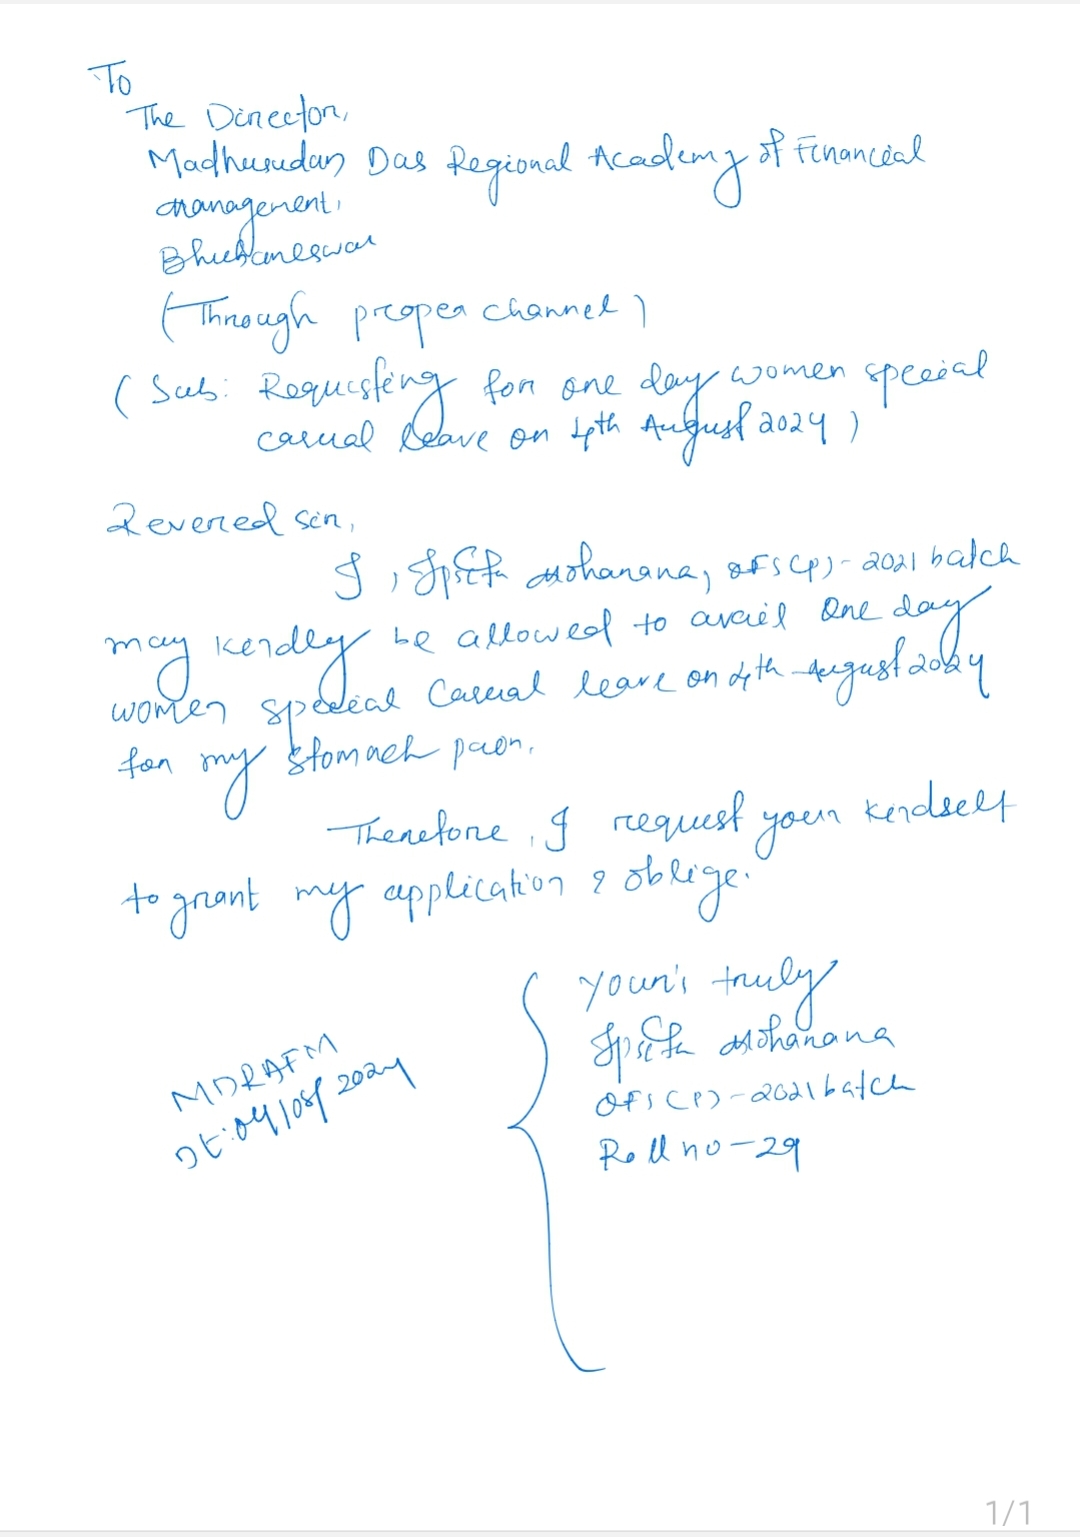 To
The Director,
Madhusudan Das Regional Academy of Financial
Management,
Bhubaneswar
(Through proper channel)
(Sub: Requesting for one day women special
casual leave on 4th August 2024)
Revered sir,
I, Ipsita Moharana, OFS(P)-2021 batch
may kindly be allowed to avail one day
women special casual leave on 4th August 2024
for my stomach pain.
Therefore, I request your kindself
to grant my application & oblige.
Your's truly
Ipsita Moharana
OFS(P)-2021 batch
Roll no-29
MDRAFM
Dt:04/08/2024
1/1